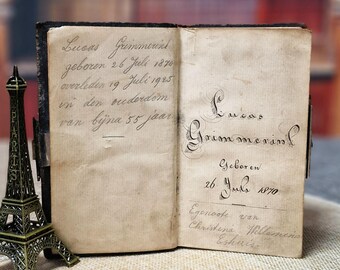 Lucas Grimmerink
geboren 26 Juli 1870
overleden 19 Juli 1925
in den ouderdom
van bijna 55 jaar
Lucas
Grimmerink
Geboren
26 Juli 1870
Egenoote van
Christina